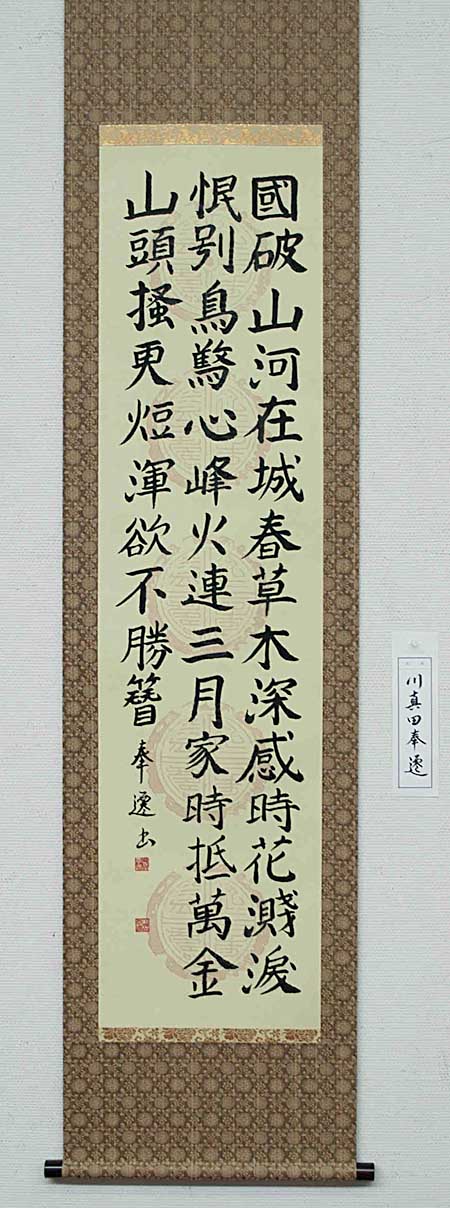 國破山河在城春草木深感時花濺淚
恨別鳥驚心峰火連三月家時抵萬金
山頭搔更短渾欲不勝簪 奉遷书
川真田奉遷